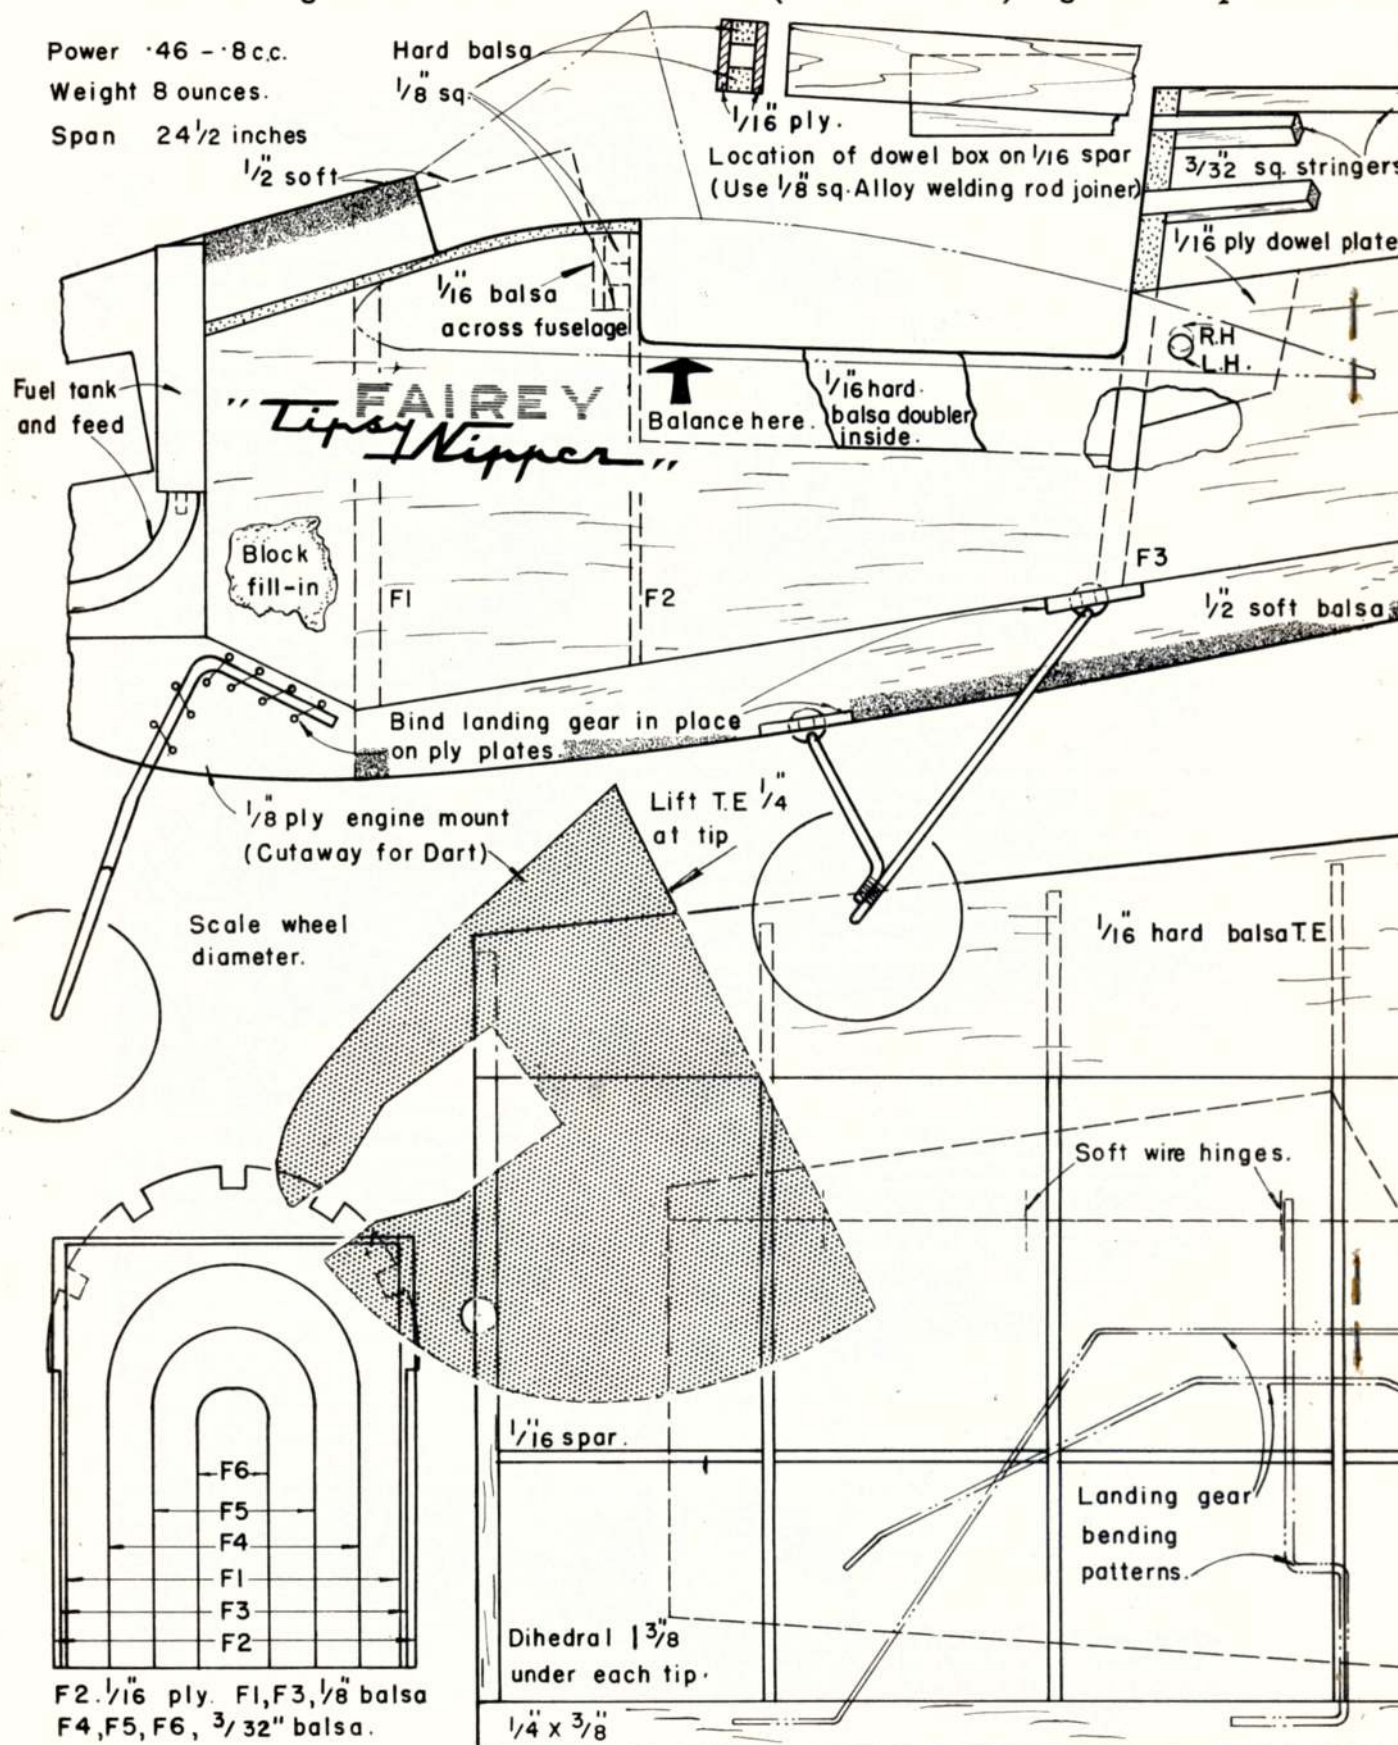 Power ·46 - ·8 c.c.
Weight 8 ounces.
Span 24 1/2 inches
Hard balsa
1/8" sq.
1/2" soft
1/16" ply.
Location of dowel box on 1/16 spar
(Use 1/8" sq. Alloy welding rod joiner)
3/32" sq. stringers
1/16" ply dowel plate
R.H
L.H.
1/16" balsa
across fuselage
Fuel tank
and feed
" FAIREY
Tipsy Nipper "
Balance here.
1/16" hard
balsa doubler
inside.
Block
fill-in
F1
F2
F3
1/2" soft balsa
Bind landing gear in place
on ply plates.
1/8" ply engine mount
(Cutaway for Dart)
Lift T.E 1/4"
at tip
Scale wheel
diameter.
1/16" hard balsa T.E
Soft wire hinges.
1/16" spar.
F6
F5
F4
F1
F3
F2
Landing gear
bending
patterns.
Dihedral 1 3/8"
under each tip.
F2. 1/16" ply. F1, F3, 1/8" balsa
F4, F5, F6, 3/32" balsa.
1/4" x 3/8"